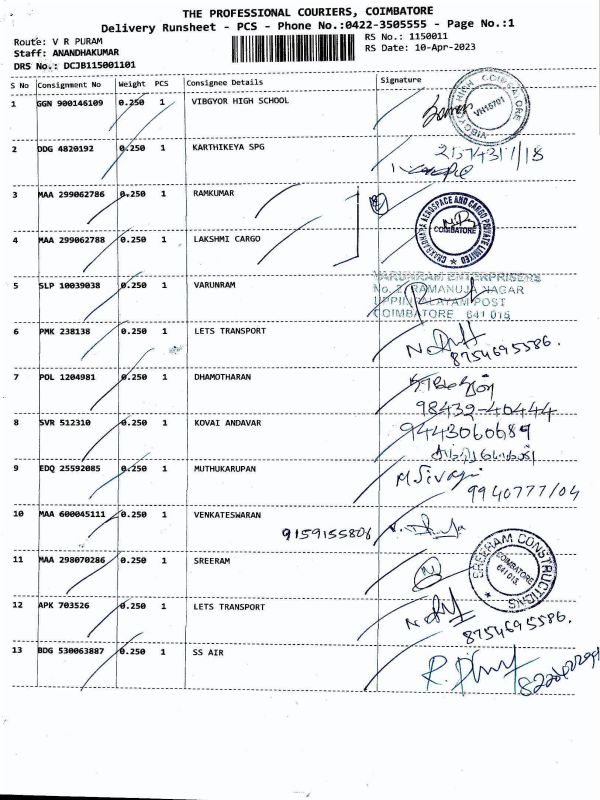 THE PROFESSIONAL COURIERS, COIMBATORE
Delivery Runsheet - PCS - Phone No.:0422-3505555 - Page No.:1
Route: V R PURAM
RS No.: 1150011
Staff: ANANDHAKUMAR
RS Date: 10-Apr-2023
DRS No.: DCJB115001101
S No Consignment No Weight PCS Consignee Details Signature
1 GGN 900146109 0.250 1 VIBGYOR HIGH SCHOOL
VIBGYOR HIGH COIMBATORE
VH15701
2 DDG 4820192 0.250 1 KARTHIKEYA SPG
3 MAA 299062786 0.250 1 RAMKUMAR
CHAKRADHARA AEROSPACE AND CARGO PRIVATE LIMITED
COIMBATORE
4 MAA 299062788 0.250 1 LAKSHMI CARGO
5 SLP 10039038 0.250 1 VARUNRAM
VARUNRAM ENTERPRISERS
No. 2, RAMANUJA NAGAR
UPPINIPALAYAM POST
COIMBATORE 641 015
6 PMK 238138 0.250 1 LETS TRANSPORT
8754695586.
7 POL 1204981 0.250 1 DHAMOTHARAN
98432-40444
8 SVR 512310 0.250 1 KOVAI ANDAVAR
9443060689
9 EDQ 25592085 0.250 1 MUTHUKARUPAN
M. Sivaji
9940777104
10 MAA 600045111 0.250 1 VENKATESWARAN
9159155806
11 MAA 298070286 0.250 1 SREERAM
SREERAM CONSTRUCTIONS
COIMBATORE
641 015.
12 APK 703526 0.250 1 LETS TRANSPORT
8754695586.
13 BDG 530063887 0.250 1 SS AIR